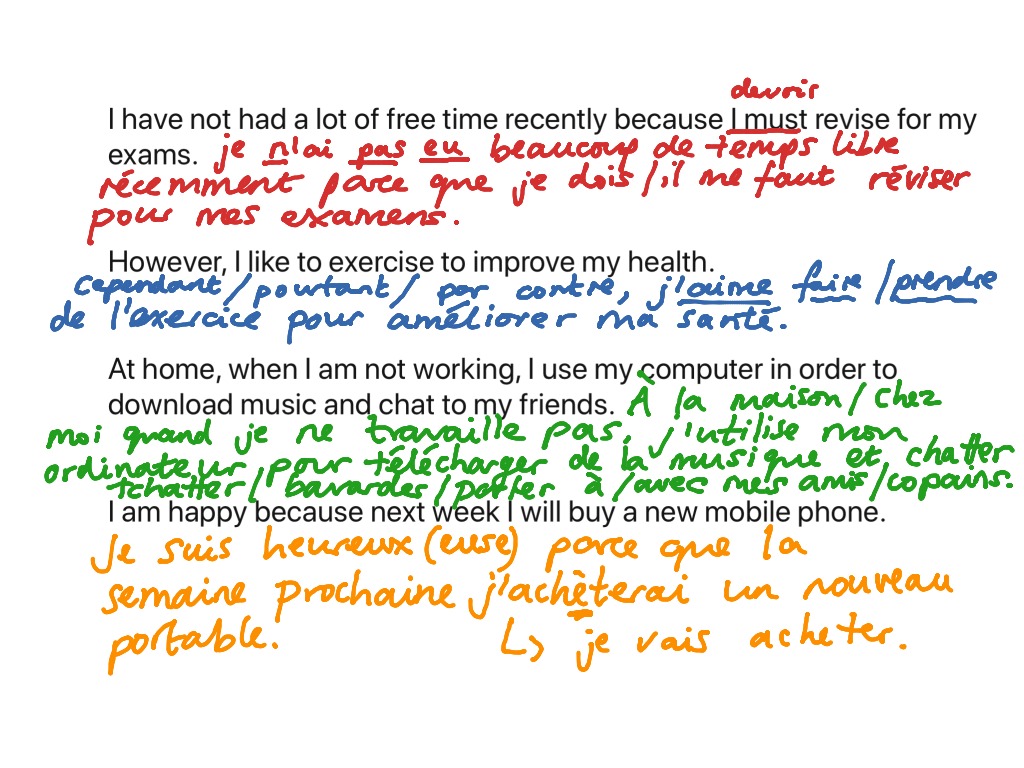 devoir
I have not had a lot of free time recently because I must revise for my
exams. je n'ai pas eu beaucoup de temps libre
récemment parce que je dois/il me faut réviser
pour mes examens.
However, I like to exercise to improve my health.
Cependant/pourtant/ par contre, j'aime faire /prendre
de l'exercice pour améliorer ma santé.
At home, when I am not working, I use my computer in order to
download music and chat to my friends. À la maison/chez
moi quand je ne travaille pas, j'utilise mon
ordinateur pour télécharger de la musique et chatter
tchatter/ bavarder/parler à/avec mes amis/copains.
I am happy because next week I will buy a new mobile phone.
Je suis heureux (euse) parce que la
semaine prochaine j'achèterai un nouveau
portable. ↳ je vais acheter.